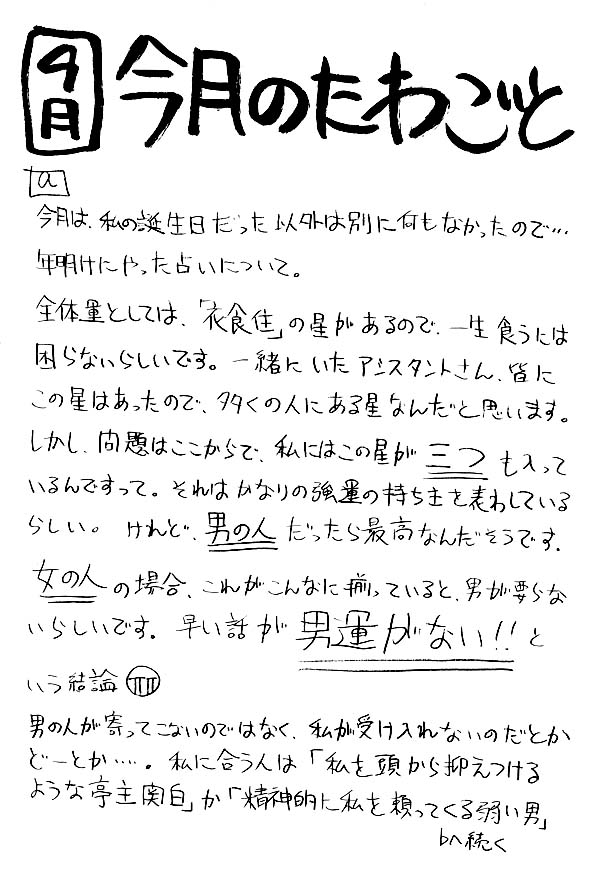 4月 今月のたわごと
a
今月は、私の誕生日だった以外は別に何もなかったので…
年明けにやった占いについて。
全体量としては、「衣食住」の星があるので、一生食うには
困らないらしいです。一緒にいたアシスタントさん、皆に
この星はあったので、多くの人にある星なんだと思います。
しかし、問題はここからで、私にはこの星が三つも入って
いるんですって。それはかなりの強運の持ち主を表わしている
らしい。けれど、男の人だったら最高なんだそうです。
女の人の場合、これがこんなに揃っていると、男が要らな
いらしいです。早い話が男運がない!!と
いう結論
男の人が寄ってこないのではなく、私が受け入れないのだとか
どーとか…。私に合う人は「私を頭から抑えつける
ような亭主関白」か「精神的に私を頼ってくる弱い男」
bへ続く